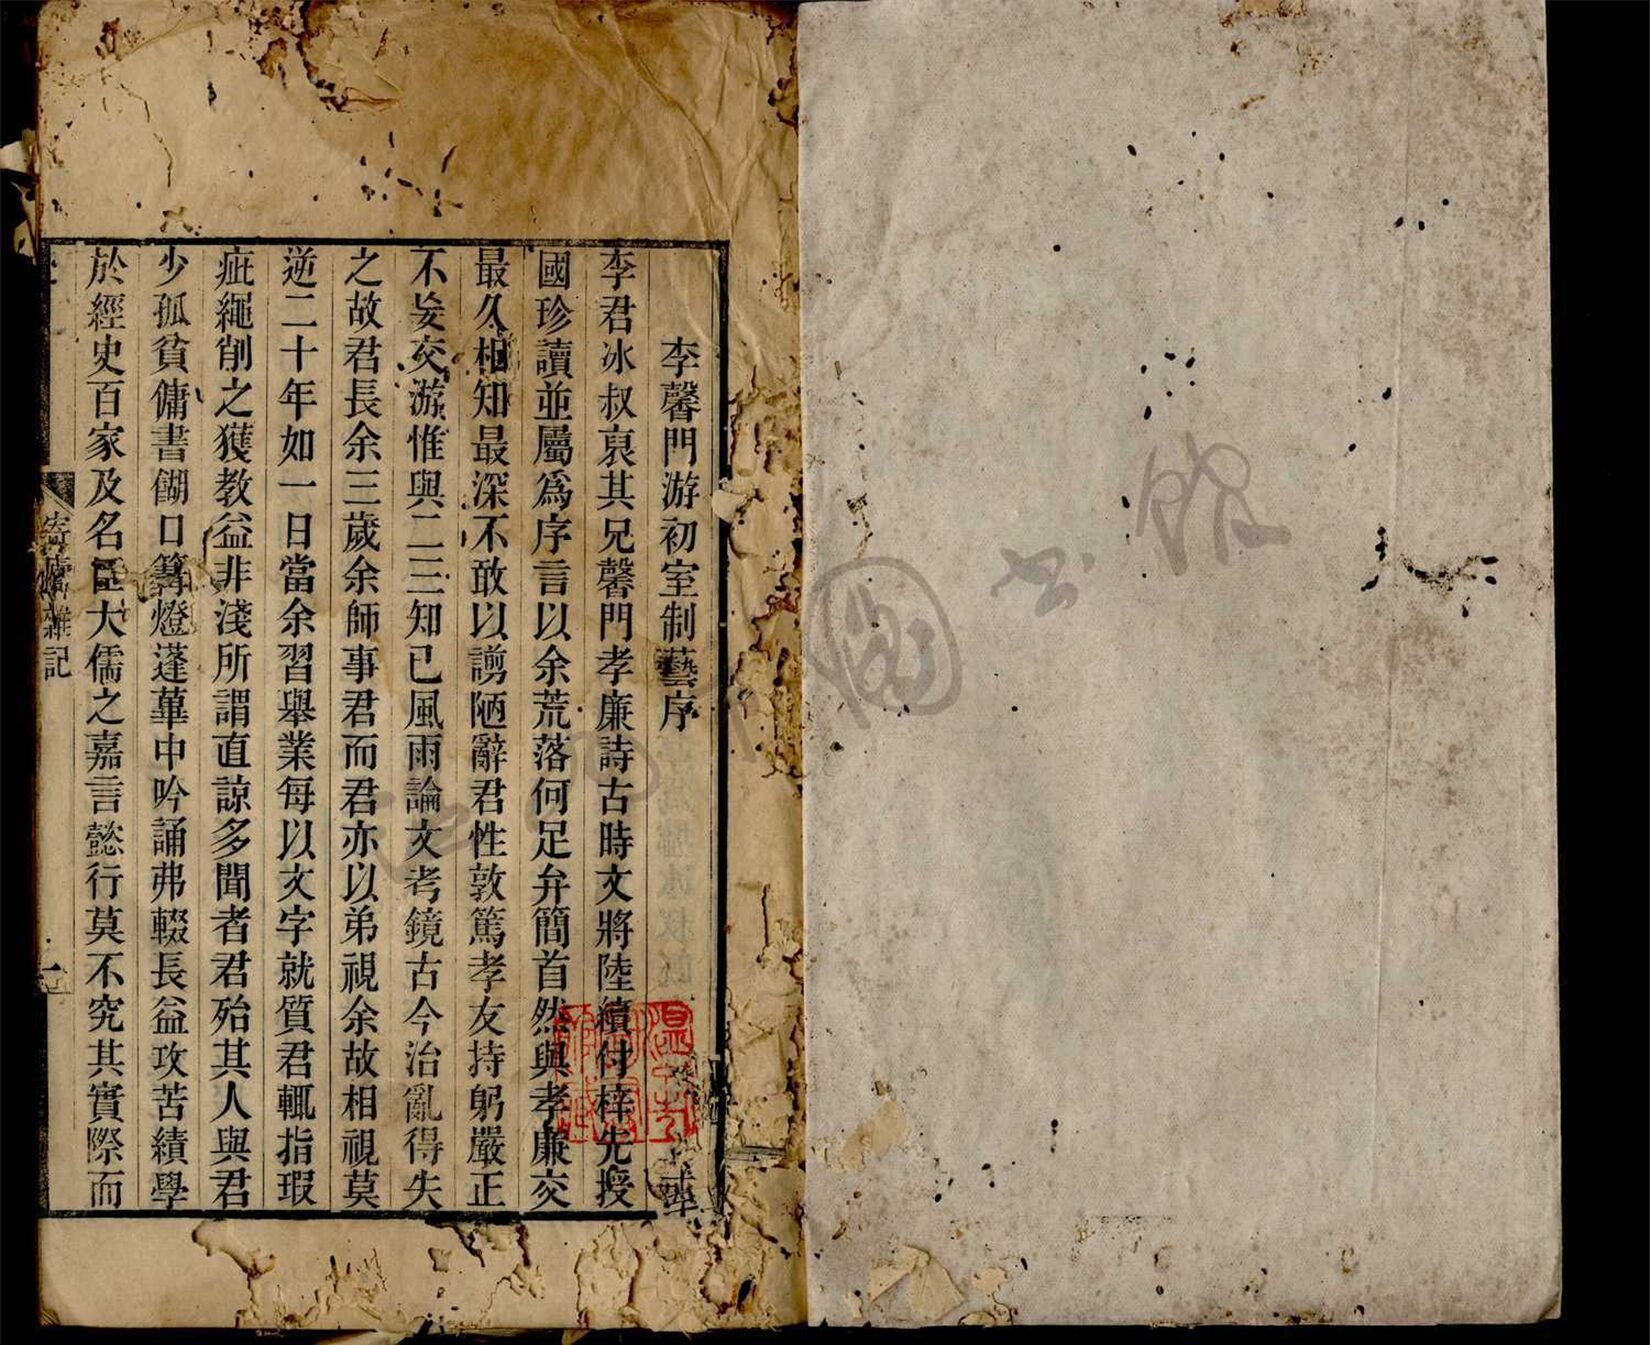 李馨門游初室制藝序
李君冰叔裒其兄馨門孝廉詩古時文將陸續付梓先授
國珍讀並屬爲序言以余荒落何足弁簡首然與孝廉交
最久相知最深不敢以謭陋辭君性敦篤孝友持躬嚴正
不妄交游惟與二三知已風雨論文考鏡古今治亂得失
之故君長余三歲余師事君而君亦以弟視余故相視莫
逆二十年如一日當余習舉業每以文字就質君輒指瑕
疵繩削之獲教益非淺所謂直諒多聞者君殆其人與君
少孤貧傭書餬口篝燈蓬蓽中吟誦弗輟長益攻苦績學
於經史百家及名臣大儒之嘉言懿行莫不究其實際而
雜記
一